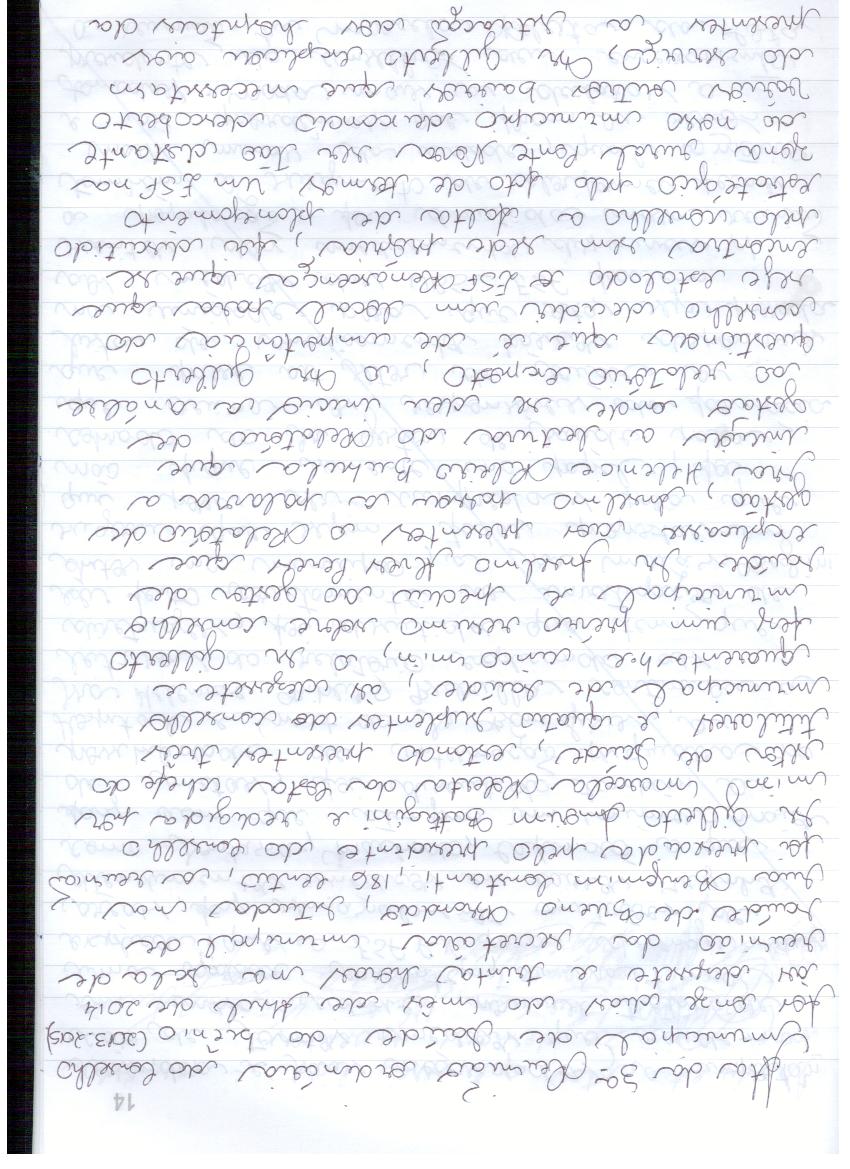 14
Ata da 3ª Reunião ordinária do Conselho
Municipal de Saúde do biênio (2013-2015)
Aos onze dias do mês de Abril de 2014
às dezesete e trinta horas na sala de
reunião da secretaria municipal de
saúde de Bueno Brandão, situada na
rua Benjamim Constant, 186, centro, a reunião
foi presidida pelo presidente do Conselho
Sr Gilberto Battagini e redigida por
mim Marcela da Costa chefe do
setor de Saúde, estando presentes três
titulares e quatro suplentes do conselho
municipal de saúde, às dezesete e
quarenta e cinco min, o Sr Gilberto
fez um prévio resumo sobre conselho
municipal e pediu ao gestor de
saúde Sr Anselmo Alves Peres que
explicasse aos presentes o Relatório de
gestão, Anselmo passou a palavra a
Sra Helenice Ribeiro que
iniciou a leitura do Relatório de
gestão onde se deu início a análise
ao relatório exposto, o Sr Gilberto
questionou que é de importância do
conselho decidir um local para que
seje estalado o ESF Renascença que se
encontra sem sede própria, foi discutido
pelo conselho a falta de planejamento
estratégico pelo fato de termos um ESF na
zona rural Ponte Nova ser tão distante
do nosso município deixando descoberto
vários outros bairros que necessitam
do serviço, Sr Gilberto explicou aos
presentes a situação dos hospitais da